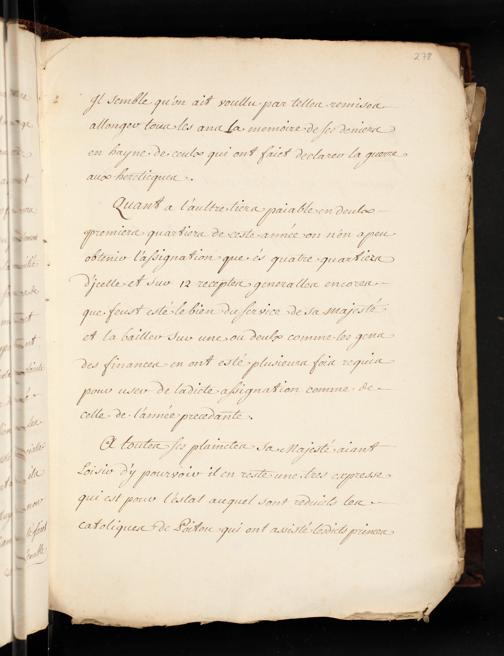 278
Il semble qu'on ait voullu par telles remises
allonger tous les ans la memoire de ses deniers
en hayne de ceulx qui ont faict declarer la guerre
aux hereticques.
Quant a l'aultre tiers paiable en deulx
premiers quartiers de ceste année on n'en a peu
obtenir l'assignation que és quatre quartiers
d'jcelle et sur 12 receptes generalles encores
que feust esté le bien du service de sa Majesté
et la bailler sur une ou deulx comme les gens
des finances en ont esté plusieurs fois requis
pour user de ladicte assignation comme de
celle de l'année precedante.
A toutes ses plainctes sa Majesté aiant
Loisir d'y pourvoir il en reste une tres expresse
qui est pour l'estat auquel sont reduicts les
catoliques de Poitou qui ont assisté lesdicts princes